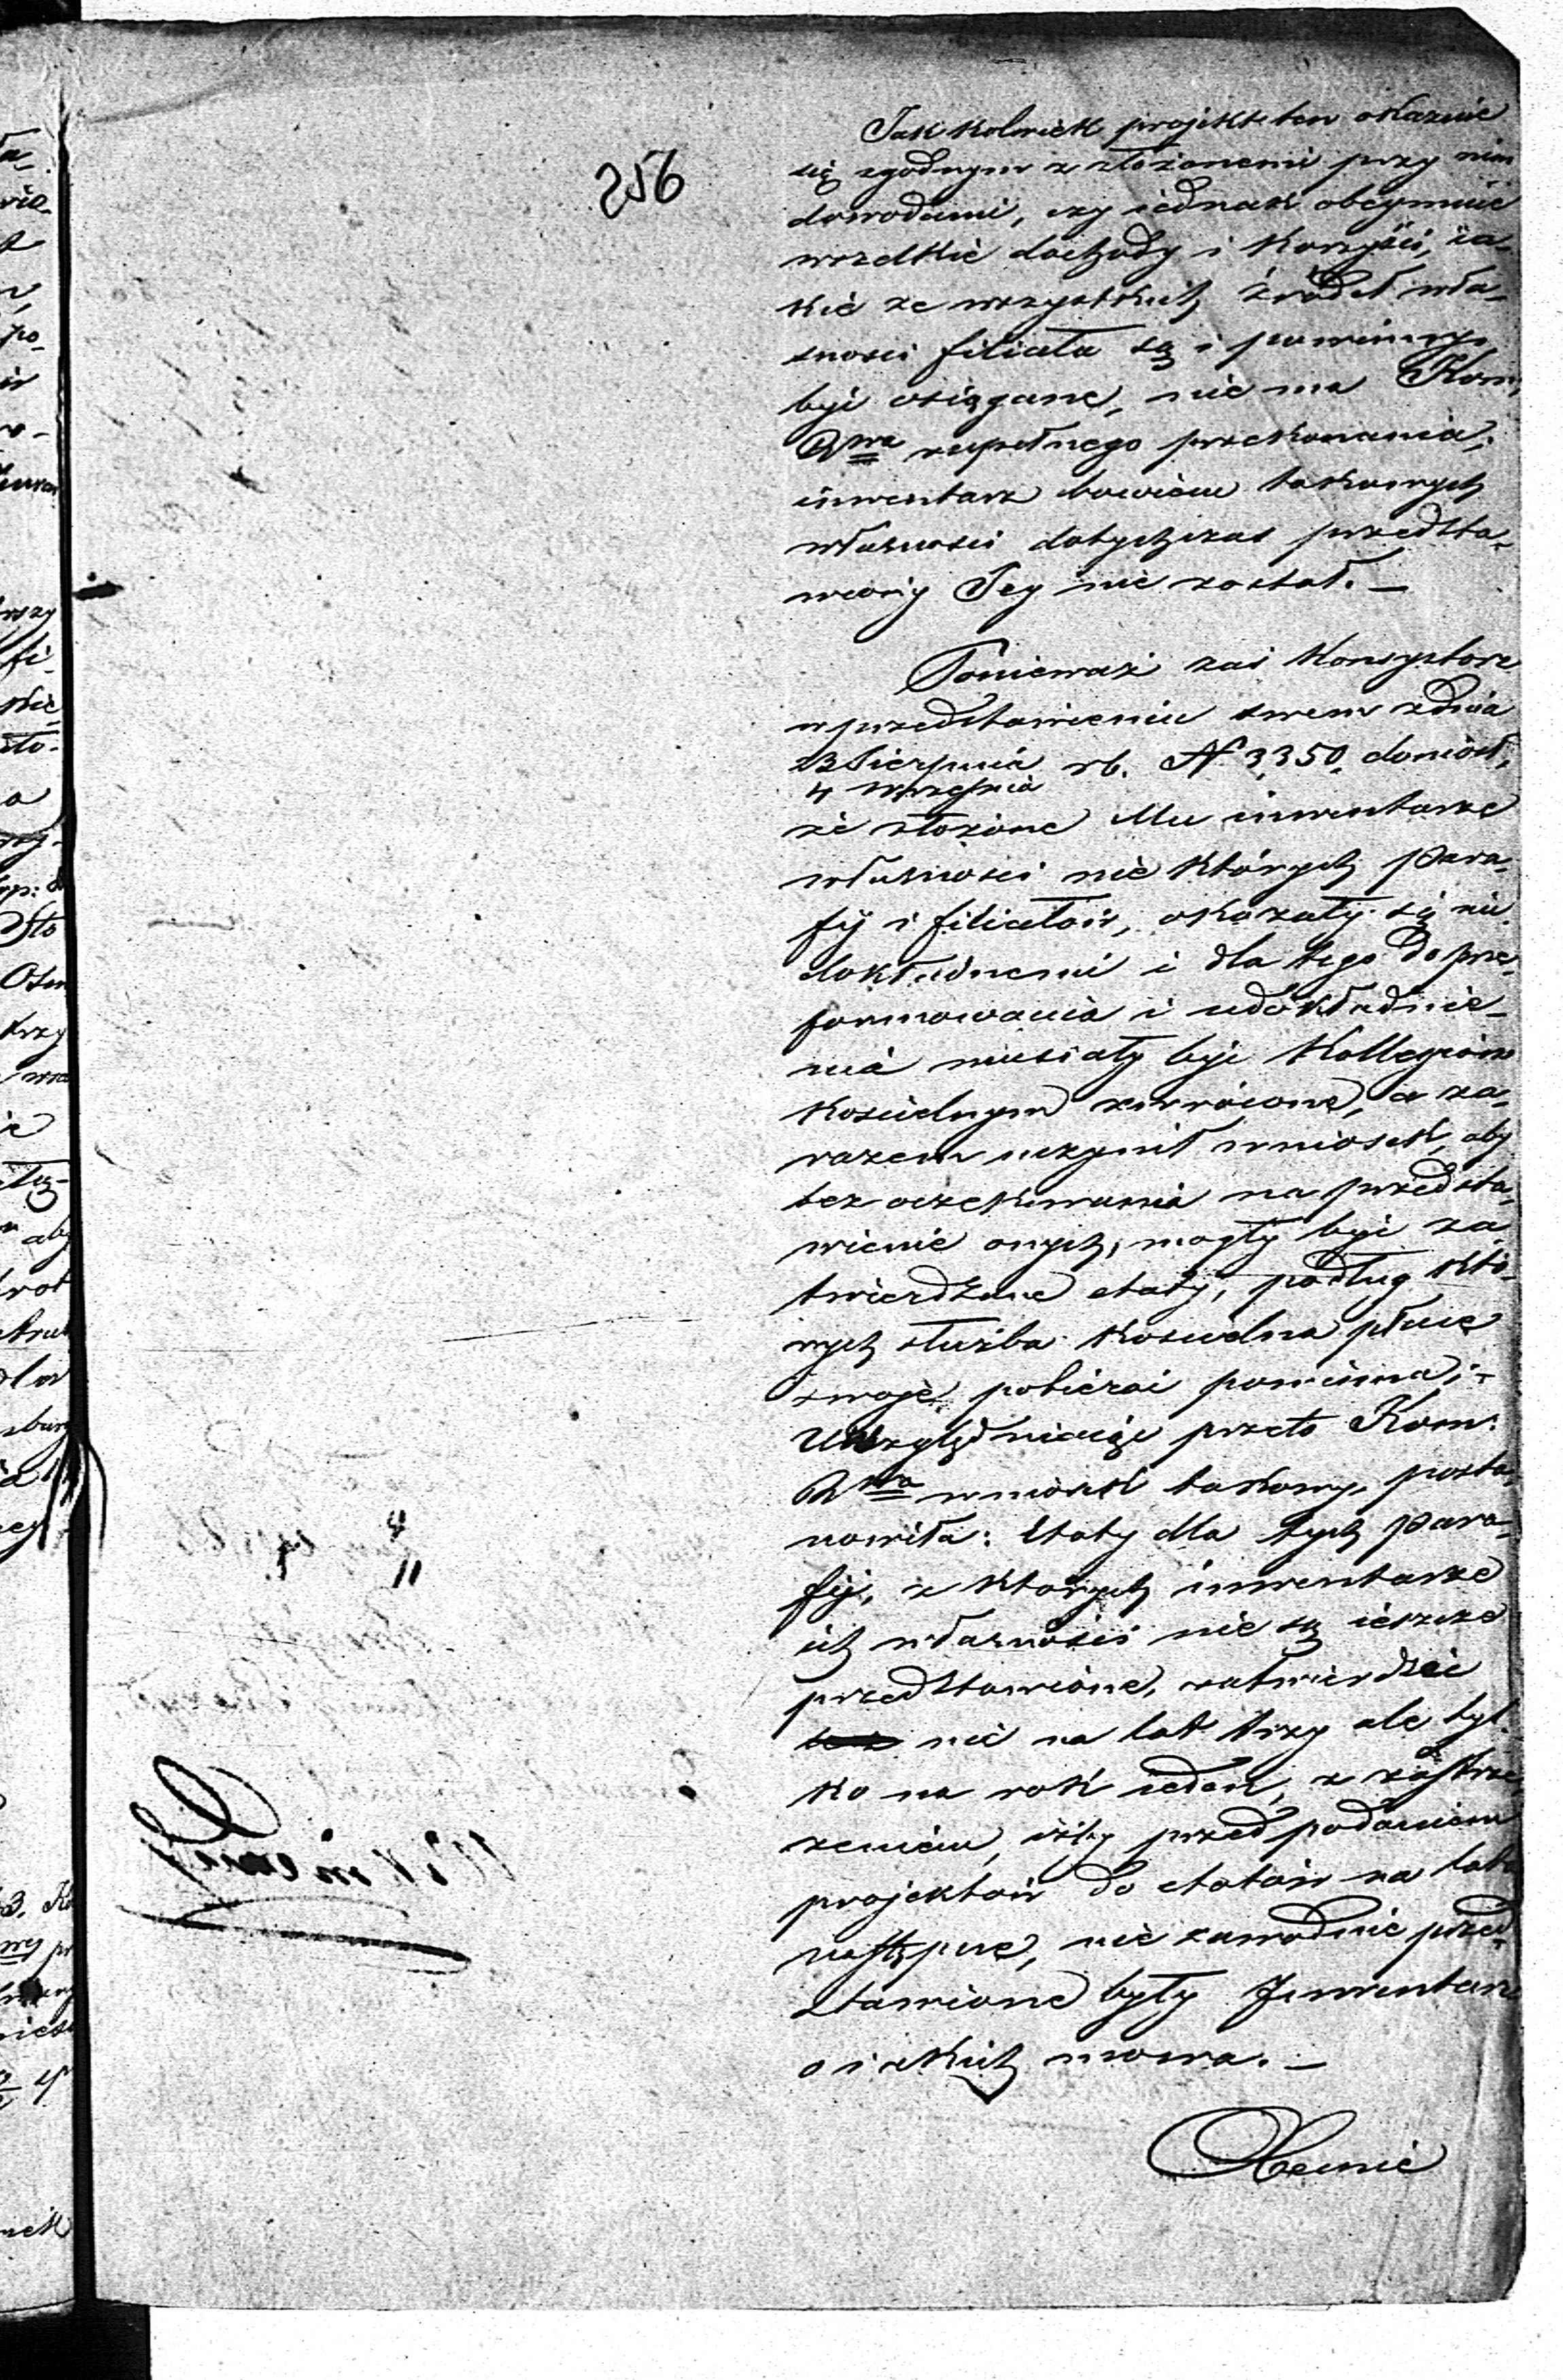 256
Jak kolwiek projekt ten okazuie
się zgodnym z złożonemi przy nim
dowodami, czy iednak obeymuie
wszelkie dochody i korzyści, ia-
kie ze wszystkich źródeł wła-
sności filiału są i powinny
być osiągane, nie ma Kom:
Rwa zupełnego przekonania,
inwentarz bowiem takowych
własności dotychczas przedsta-
wiony Jey nie został. —
Ponieważ zaś Konsystorz
w przedstawieniu swem z dnia
23 Sierpnia rb. N. 3350. doniósł,
4 Września
że złożone Mu inwentarze
własności nie których Para-
fij i filiałów, okazały się nie
dokładnemi i dla tego do prze-
formowania i udokładnie-
nia musiały być Kollegiom
Kościelnym zwrócone, a za-
razem uczynił wniosek, aby
bez oczekiwania na przedsta-
wienie onych, mogły być za-
twierdzone etaty, podług któ-
rych służba Kościelna płacę
swoje pobierać powinna; -
Uwzględniaiąc przeto Kom:
Rwa wniosek takowy, posta-
nowiła: Etaty dla tych Para-
fij, z których inwentarze
ich własności nie są ieszcze
przedstawione, zatwierdzić
nie na lat trzy ale tyl-
ko na rok ieden, z zastrze-
żeniem, iżby przed podaniem
projektów do etatów na lata
następne, nie zawodnie przed-
stawione były Inwentarze
o iakich mowa. —
Obecnie